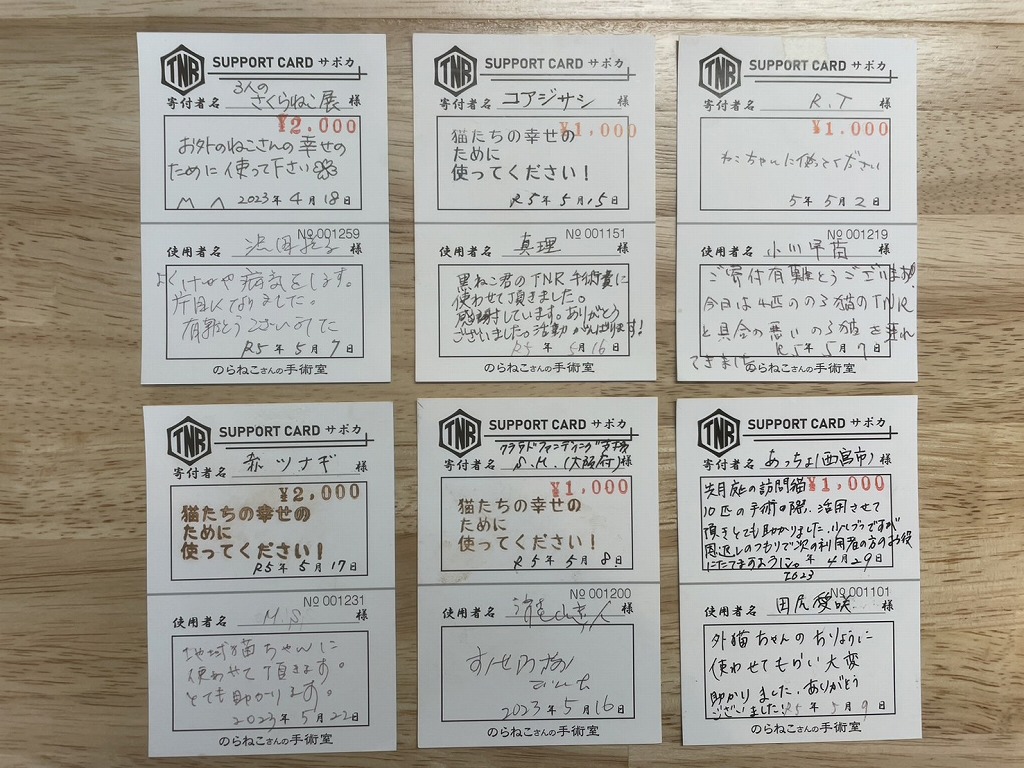 TNR SUPPORT CARD サポカ
寄付者名 3人の さくらねこ展 様
¥2,000
お外のねこさんの幸せの
ために使って下さい
2023年 4月 18日
No 001259
使用者名 様
よくけがや病気をします。
片目になりました。
有難とうございました
R5年 5月 7日
のらねこさんの手術室
TNR SUPPORT CARD サポカ
寄付者名 コアジサシ 様
¥1,000
猫たちの幸せの
ために
使ってください!
R5年 5月 15日
No 001151
使用者名 真理 様
黒ねこ君のTNR手術費に
使わせて頂きました。
感謝しています。ありがとう
ございました。活動がんばります!
R5年 5月 16日
のらねこさんの手術室
TNR SUPPORT CARD サポカ
寄付者名 R.T 様
¥1,000
ねこちゃんに使ってください
5年 5月 2日
No 001219
使用者名 小川早苗 様
ご寄付有難とうございます!
今日は4匹ののら猫のTNR
と具合の悪いのら猫を連れ
てきました
R5年 5月 7日
のらねこさんの手術室
TNR SUPPORT CARD サポカ
寄付者名 赤ツナギ 様
¥2,000
猫たちの幸せの
ために
使ってください!
R5年 5月 17日
No 001231
使用者名 M.S 様
地域猫ちゃんに
使わせて頂きます。
とても助かります。
2023年 5月 22日
のらねこさんの手術室
TNR SUPPORT CARD サポカ
クラウドファンディング支援者
寄付者名 S.M.(大阪府) 様
¥1,000
猫たちの幸せの
ために
使ってください!
R5年 5月 8日
No 001200
使用者名 様
2023年 5月 16日
のらねこさんの手術室
TNR SUPPORT CARD サポカ
寄付者名 あっちょ(西宮市) 様
¥1,000
先月庭の訪問猫
10匹の手術の際、活用させて
頂きとても助かりました。少しづつですが
恩返しのつもりで次の利用者の方のお役
にたてますように。
2023年 4月 29日
No 001101
使用者名 田尻愛咲 様
外猫ちゃんのちりょうに
使わせてもらい大変
助かりました。ありがとう
ございました! R5年 5月 9日
のらねこさんの手術室